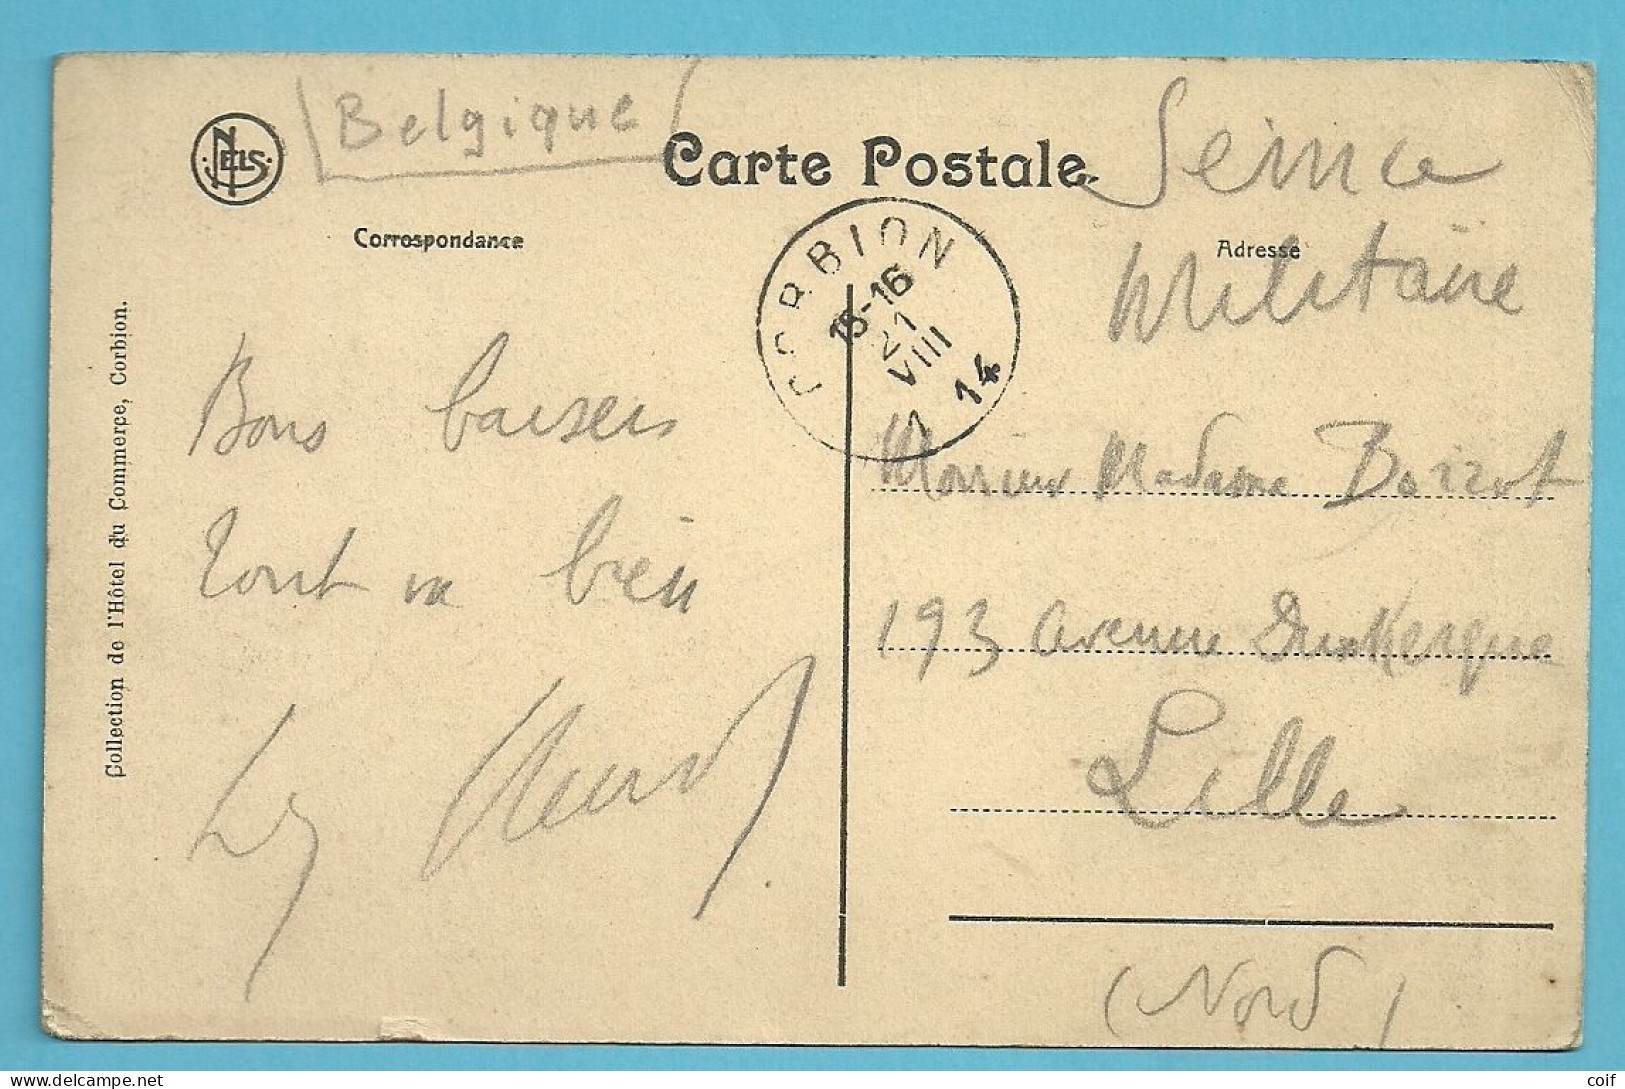 Belgique
NELS
Carte Postale
Service
Militaire
Correspondance
Adresse
CORBION
15-16
21
VIII
14
Collection de l'Hôtel du Commerce, Corbion.
Bons baisers
Tout va bien
Monsieur Madame Boizot
193 avenue Dunkerque
Lille
(Nord)
coif